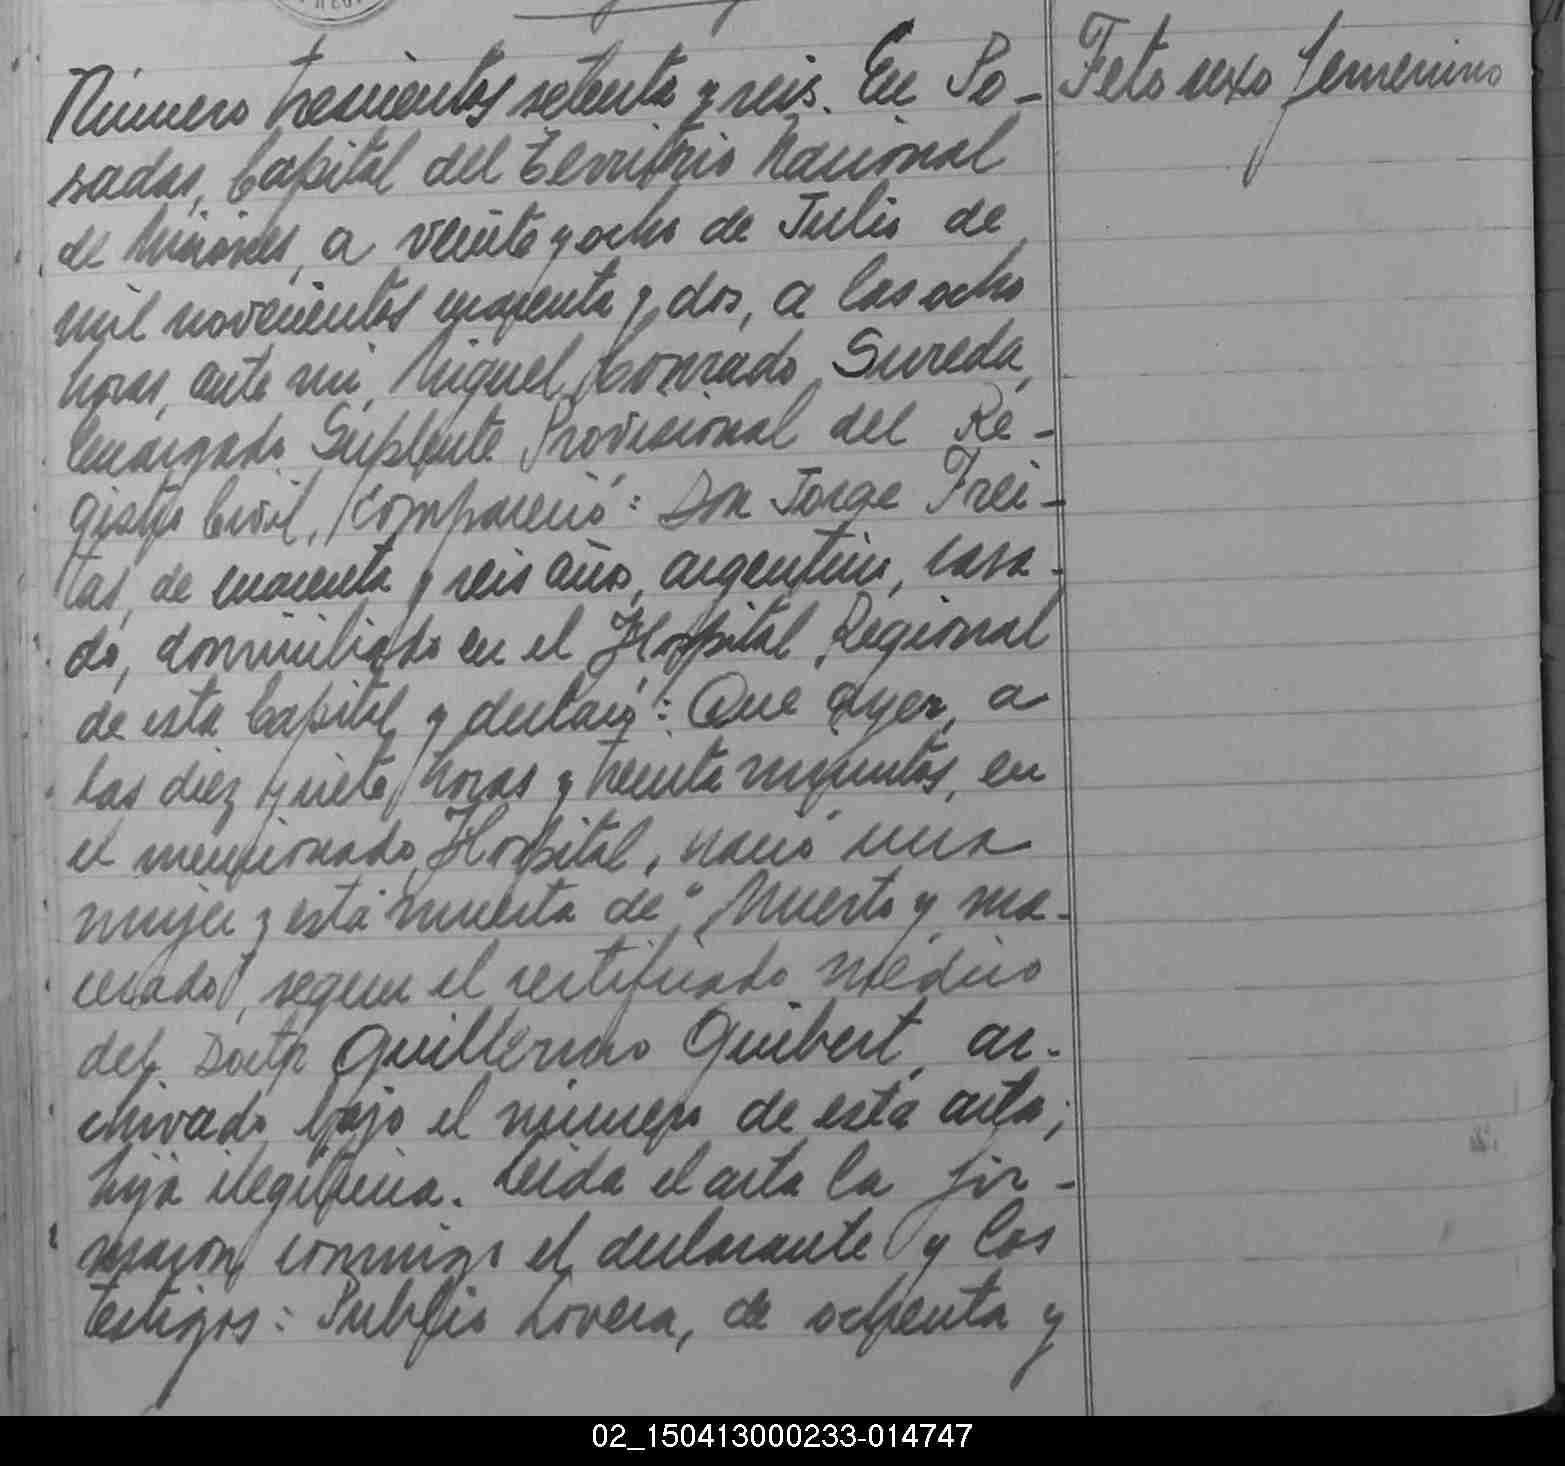 Número trescientos setenta y seis. En Po-
sadas, Capital del Territorio Nacional
de Misiones, a veinte y ocho de Julio de
mil novecientos cuarenta y dos, a las ocho
horas, ante mi, Miguel Conrado Sureda,
Encargado Suplente Provisional del Re-
gistro Civil, compareció: Don Jorge Frei-
tas, de cuarenta y seis años, argentino, casa-
do, domiciliado en el Hospital Regional
de esta Capital y declaró: Que ayer, a
las diez y siete horas y treinta minutos, en
el mencionado Hospital, nació una
mujer y está muerta de "Muerto y ma-
cerado", segun el certificado médico
del Doctor Guillermo Guibert, ar-
chivado bajo el número de esta acta;
hija ilegítima. Leida el acta la fir-
maron conmigo el declarante y los
testigos: Publio Lovera, de ochenta y
Feto sexo femenino
02_150413000233-014747